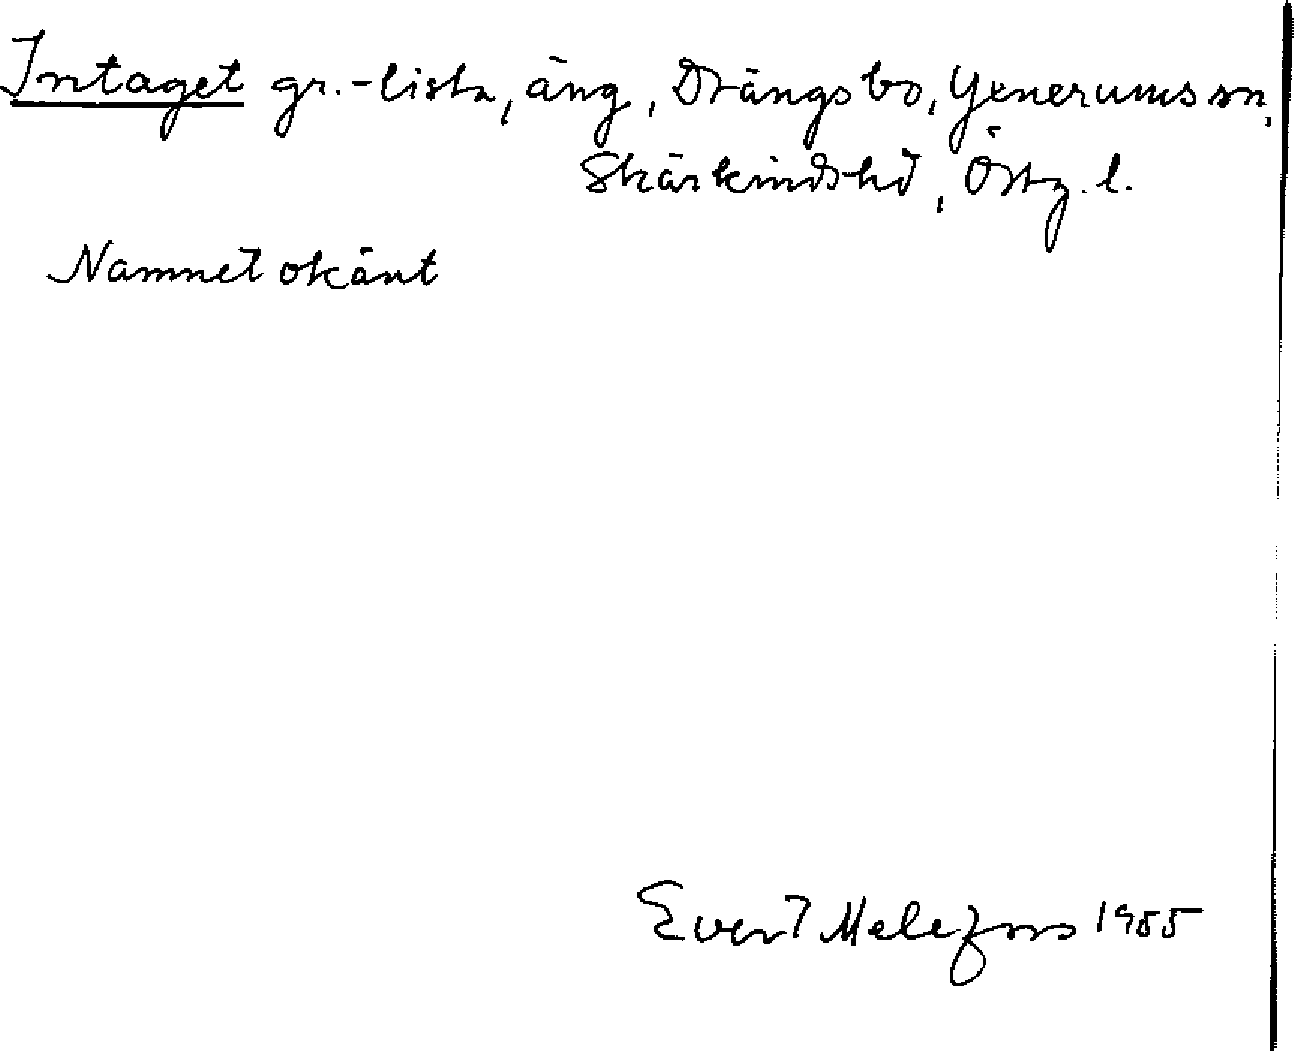 Intaget gr.-lista, äng, Drängsbo, Yxnerums sn,
Skärkinds hd, Östg. l.
Namnet okänt
Evert Melefors 1955